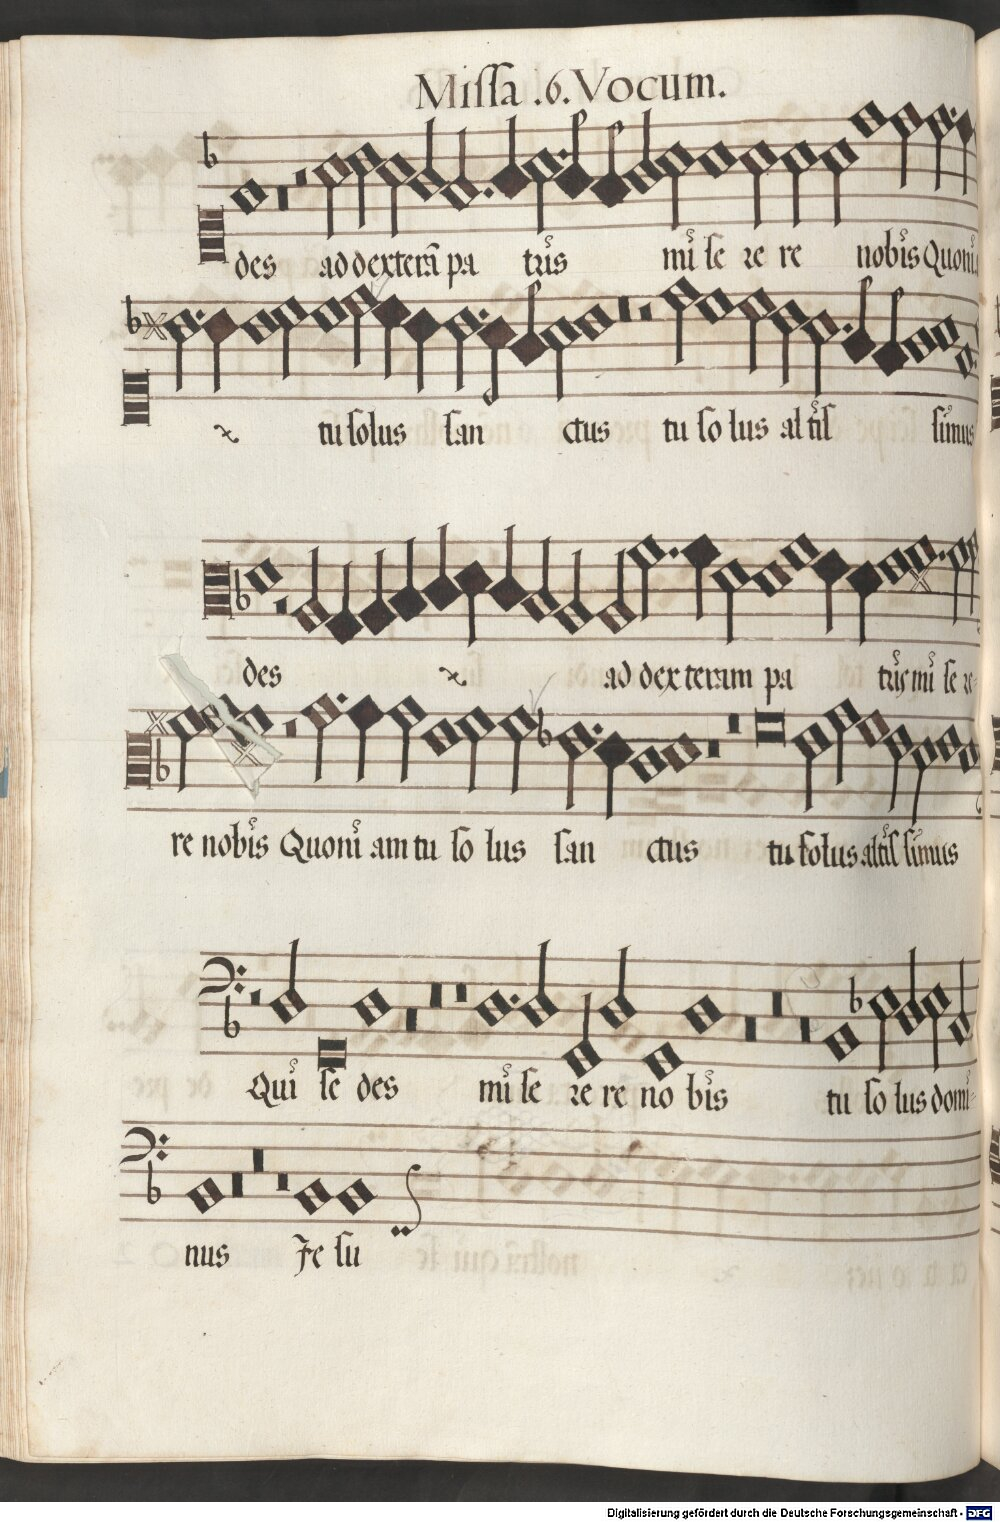 Missa .6. Vocum.
des ad dexterā pa tris mi se re re nobis Quoni
tu solus san ctus tu so lus al tis simus
des ad dex teram pa tris mi se re-
re nobis Quoni am tu so lus san ctus tu solus altis simus
Qui se des mi se re re no bis tu so lus domi-
nus Je su
Digitalisierung gefördert durch die Deutsche Forschungsgemeinschaft - DFG